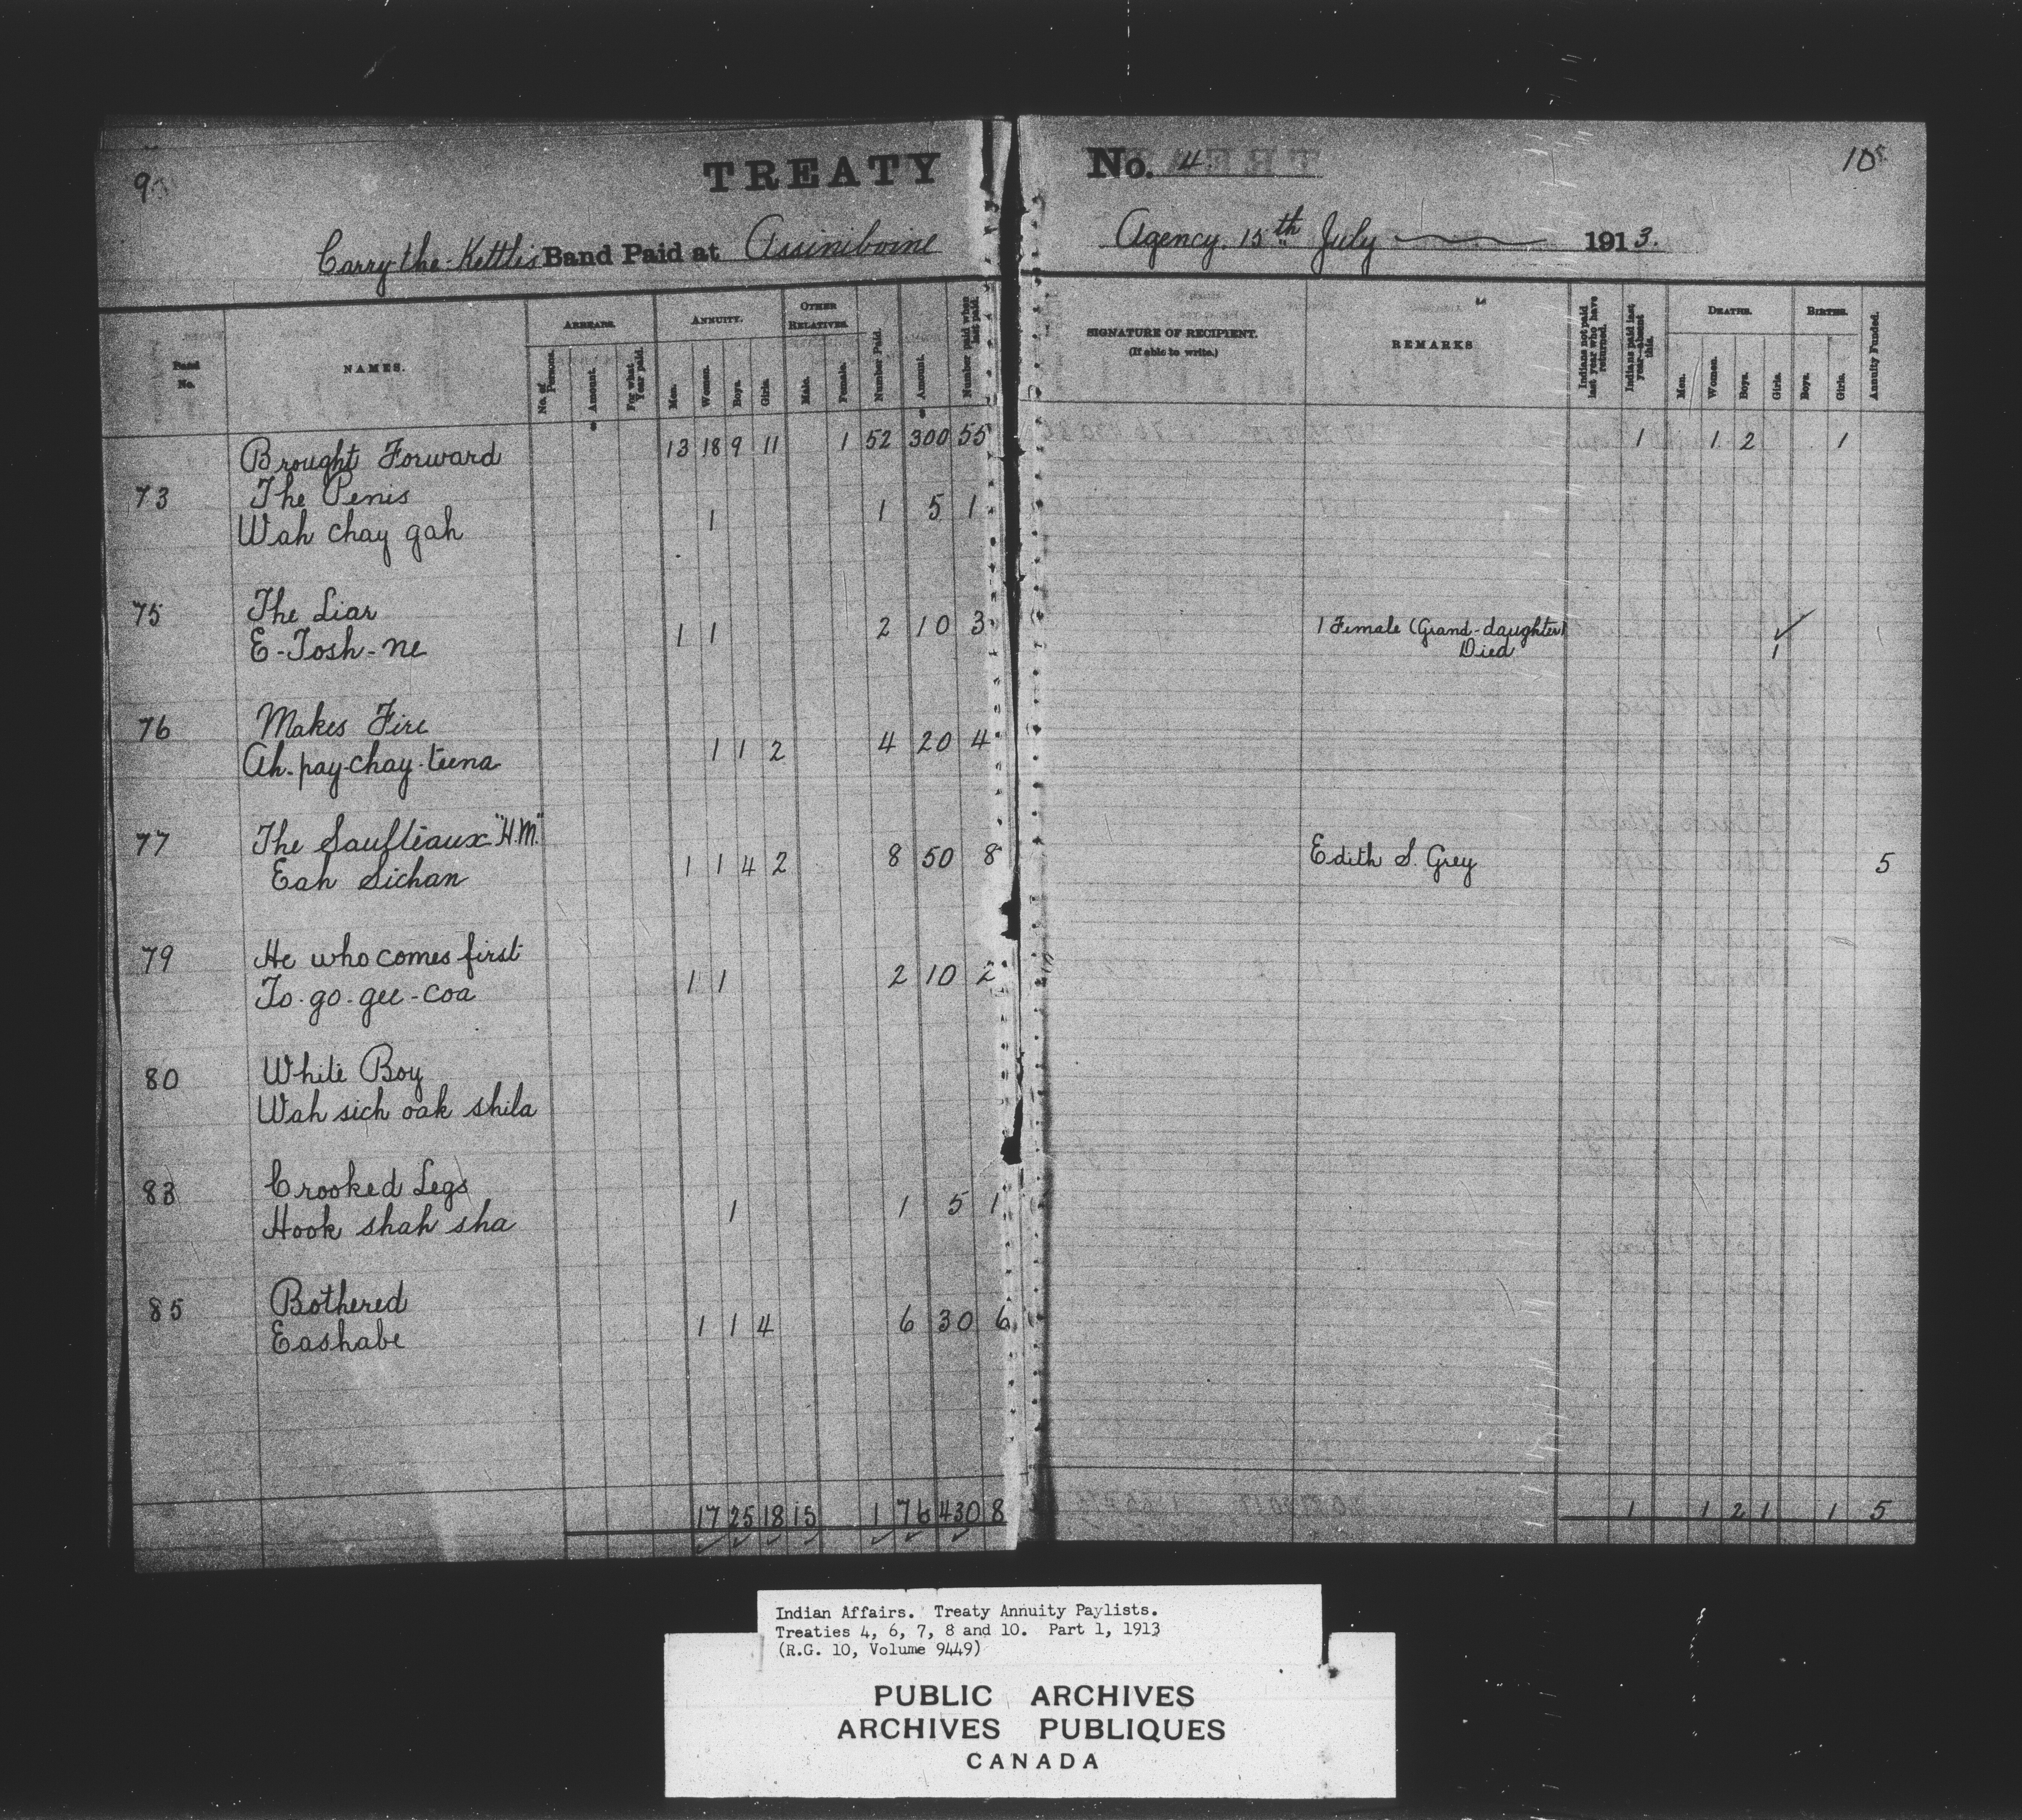 9
TREATY No. 4
10
Carry-the-Kettles Band Paid at Assiniboine Agency. 15th July 1913.
Band No.
NAMES.
ARREARS.
No. of Persons.
Amount.
For what Year paid.
ANNUITY.
Men.
Women.
Boys.
Girls.
OTHER RELATIVES.
Male.
Female.
Number Paid.
Amount.
Number paid when last paid.
SIGNATURE OF RECIPIENT.
(If able to write.)
REMARKS
Indians not paid last year who have returned.
Indians paid last year—absent this.
DEATHS.
Men.
Women.
Boys.
Girls.
BIRTHS.
Boys.
Girls.
Annuity Funded.
Brought Forward 13 18 9 11 1 52 300 55 1 1 2 1
73 The Penis
Wah chay gah 1 1 5 1
75 The Liar
E-Tosh-ne 1 1 2 10 3 1 Female (Grand-daughter)
Died 1
76 Makes Fire
Ah-pay-chay-teena 1 1 2 4 20 4
77 The Saulteaux "H.M."
Eah Sichan 1 1 4 2 8 50 8 Edith S. Grey 5
79 He who comes first
To-go-gee-coa 1 1 2 10 2
80 White Boy
Wah sich oak shila
83 Crooked Legs
Hook shah sha 1 1 5 1
85 Bothered
Eashabe 1 1 4 6 30 6
17 25 18 15 1 76 430 8 1 1 2 1 1 5
Indian Affairs. Treaty Annuity Paylists.
Treaties 4, 6, 7, 8 and 10. Part 1, 1913
(R.G. 10, Volume 9449)
PUBLIC ARCHIVES
ARCHIVES PUBLIQUES
CANADA